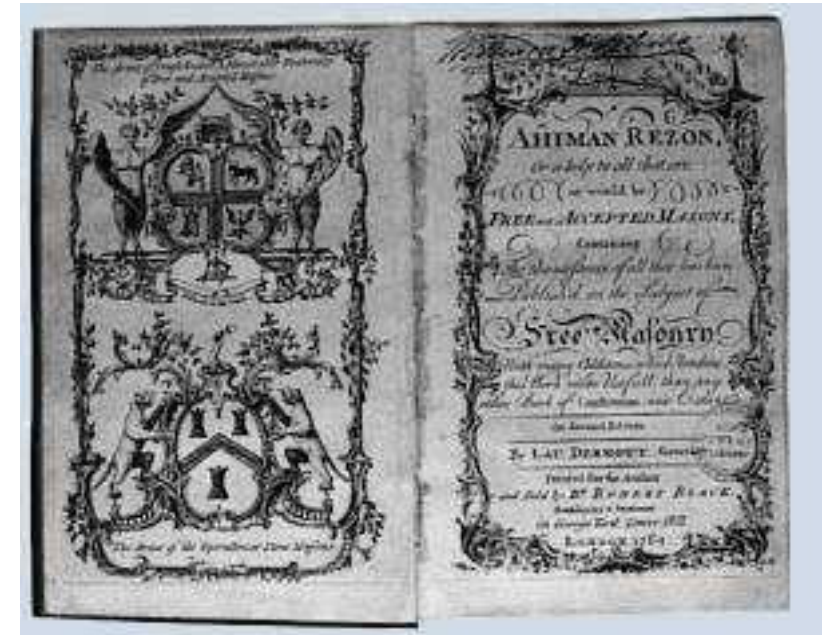 The Arms of
Free and Accepted Masons
The Arms of the Operative or Stone Masons
AHIMAN REZON,
Or a help to all that are
or would be
FREE and ACCEPTED MASONS,
Containing
The Quintessence of all that has been
Publish'd on the Subject of
Free Masonry
With many Additions which Renders
this Work more Usefull, than any
other Book of Constitution now Extant
The Second Edition
By LAU. DERMOTT, Secretary
Printed for the Author
and Sold by Br. ROBERT BLACK,
Bookbinder & Stationer
in George Yard, Tower Hill
LONDON 1764